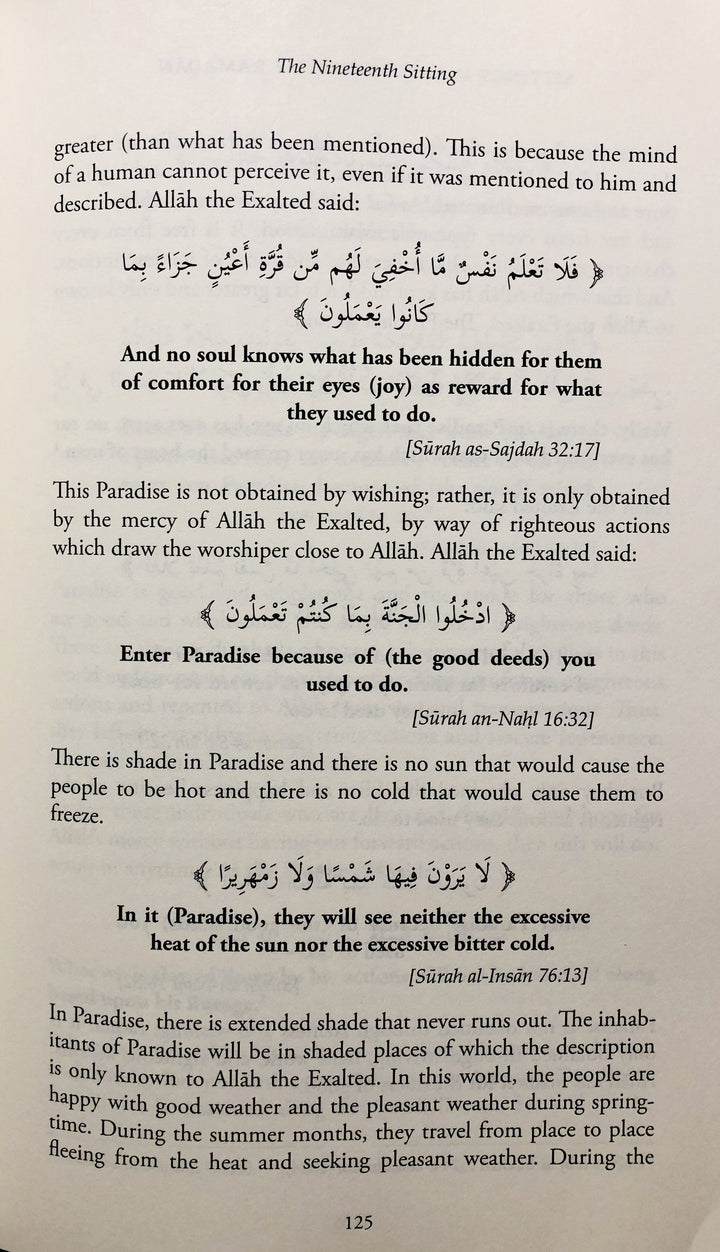 The Nineteenth Sitting
greater (than what has been mentioned). This is because the mind
of a human cannot perceive it, even if it was mentioned to him and
described. Allāh the Exalted said:
﴿ فَلَا تَعْلَمُ نَفْسٌ مَّا أُخْفِيَ لَهُم مِّن قُرَّةِ أَعْيُنٍ جَزَاءً بِمَا
كَانُوا يَعْمَلُونَ ﴾
And no soul knows what has been hidden for them
of comfort for their eyes (joy) as reward for what
they used to do.
[Sūrah as-Sajdah 32:17]
This Paradise is not obtained by wishing; rather, it is only obtained
by the mercy of Allāh the Exalted, by way of righteous actions
which draw the worshiper close to Allāh. Allāh the Exalted said:
﴿ ادْخُلُوا الْجَنَّةَ بِمَا كُنتُمْ تَعْمَلُونَ ﴾
Enter Paradise because of (the good deeds) you
used to do.
[Sūrah an-Naḥl 16:32]
There is shade in Paradise and there is no sun that would cause the
people to be hot and there is no cold that would cause them to
freeze.
﴿ لَا يَرَوْنَ فِيهَا شَمْسًا وَلَا زَمْهَرِيرًا ﴾
In it (Paradise), they will see neither the excessive
heat of the sun nor the excessive bitter cold.
[Sūrah al-Insān 76:13]
In Paradise, there is extended shade that never runs out. The inhab-
itants of Paradise will be in shaded places of which the description
is only known to Allāh the Exalted. In this world, the people are
happy with good weather and the pleasant weather during spring-
time. During the summer months, they travel from place to place
fleeing from the heat and seeking pleasant weather. During the
125